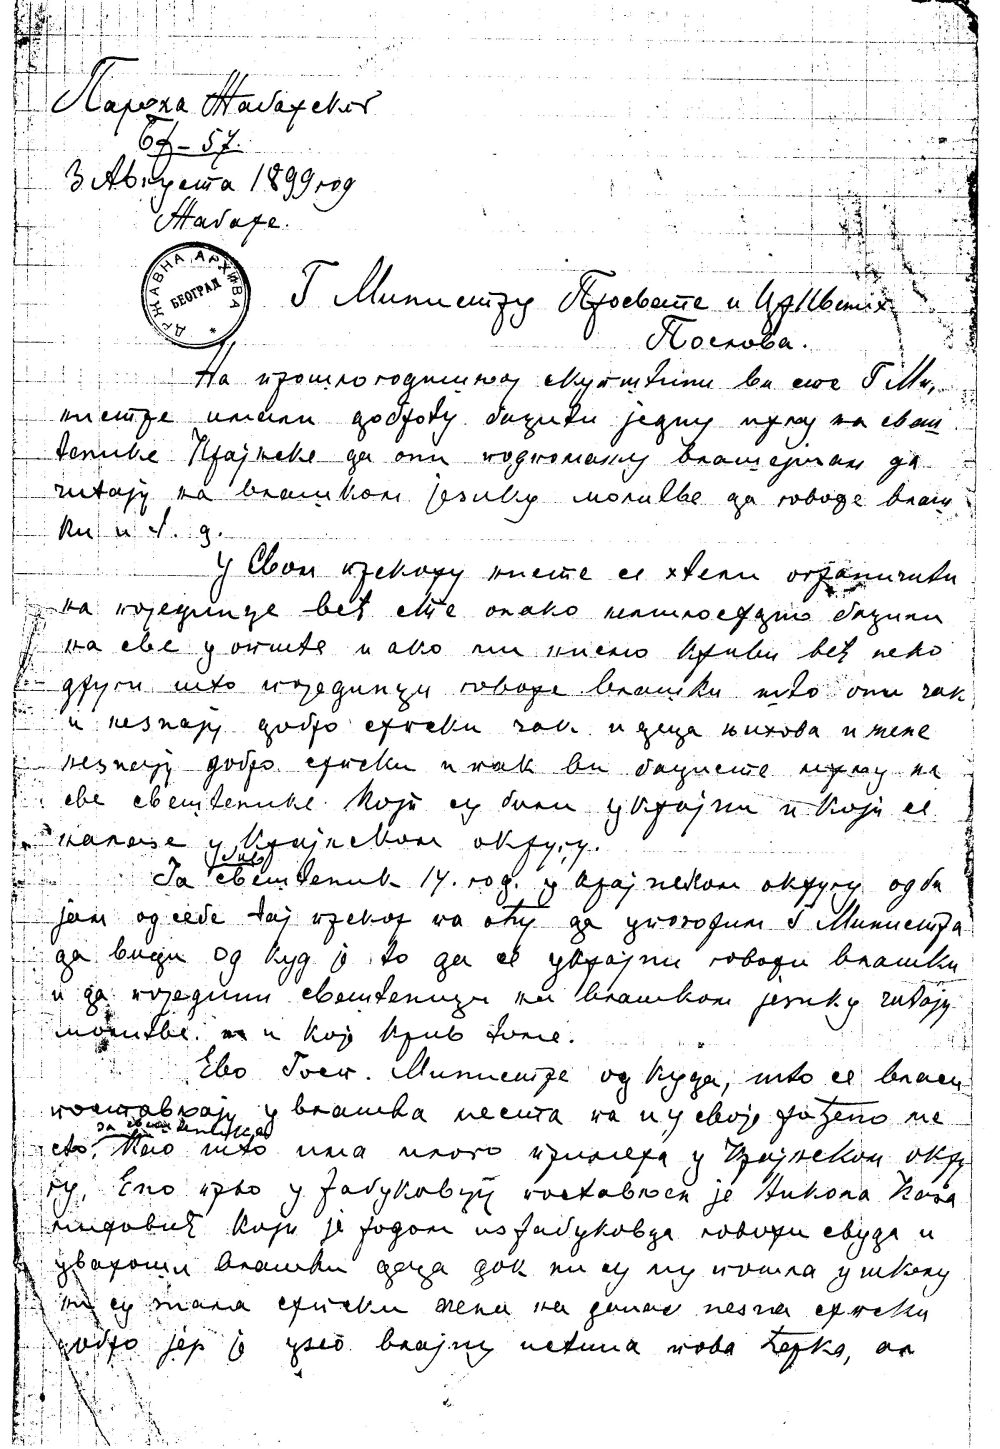 Пароха Жабарског
Бр – 57.
3 Августа 1899 год
Жабаре.
ДРЖАВНА АРХИВА
БЕОГРАД
Г Министру Просвете и Црквених
Послова.
На прошлогодишњој скупштини ви сте Г Ми,
нистре имали доброту бацити једну мрљу на свеш
тенике Крајнске да они подпомажу влашчан да
читају на влашком језику молитве да говоре влаш
ки и т. д.
У Свом прекору нисте се хтели ограничити
на појединце већ сте онако непосредно бацили
на све у опште и ако ми нисмо криви већ неко
други што појединци говоре влашки што они чак
и незнају добро српски чак и деца њихова и жене
незнају добро српски и так ви бацисте мрљу на
све свештенике који су били у крајни и који се
налазе у Крајнском округу.
Ја свештеник 17. год. у крајнском округу одби
јам од себе тај прекор на оћу да умолим Г Министра
да види од куд је то да се у крајни говори влашки
и да поједини свештеници на влашком језику читају
молитве. и кој крив томе.
Ево Госп. Министре од куда, што се власи
постављају у влашка места па и у своје рођено ме
за свештенике
сто, Као што има много примера у Крајнском окру
гу, Ено прво у Јабуковцу постављен је Никола
који је родом из Јабуковца говори свуда и
у вароши влашки деца док ни су му пошла у школу
ни су знала српски жена на данас незна српски
добро јер је узео влајну истина попа ћерка, ал